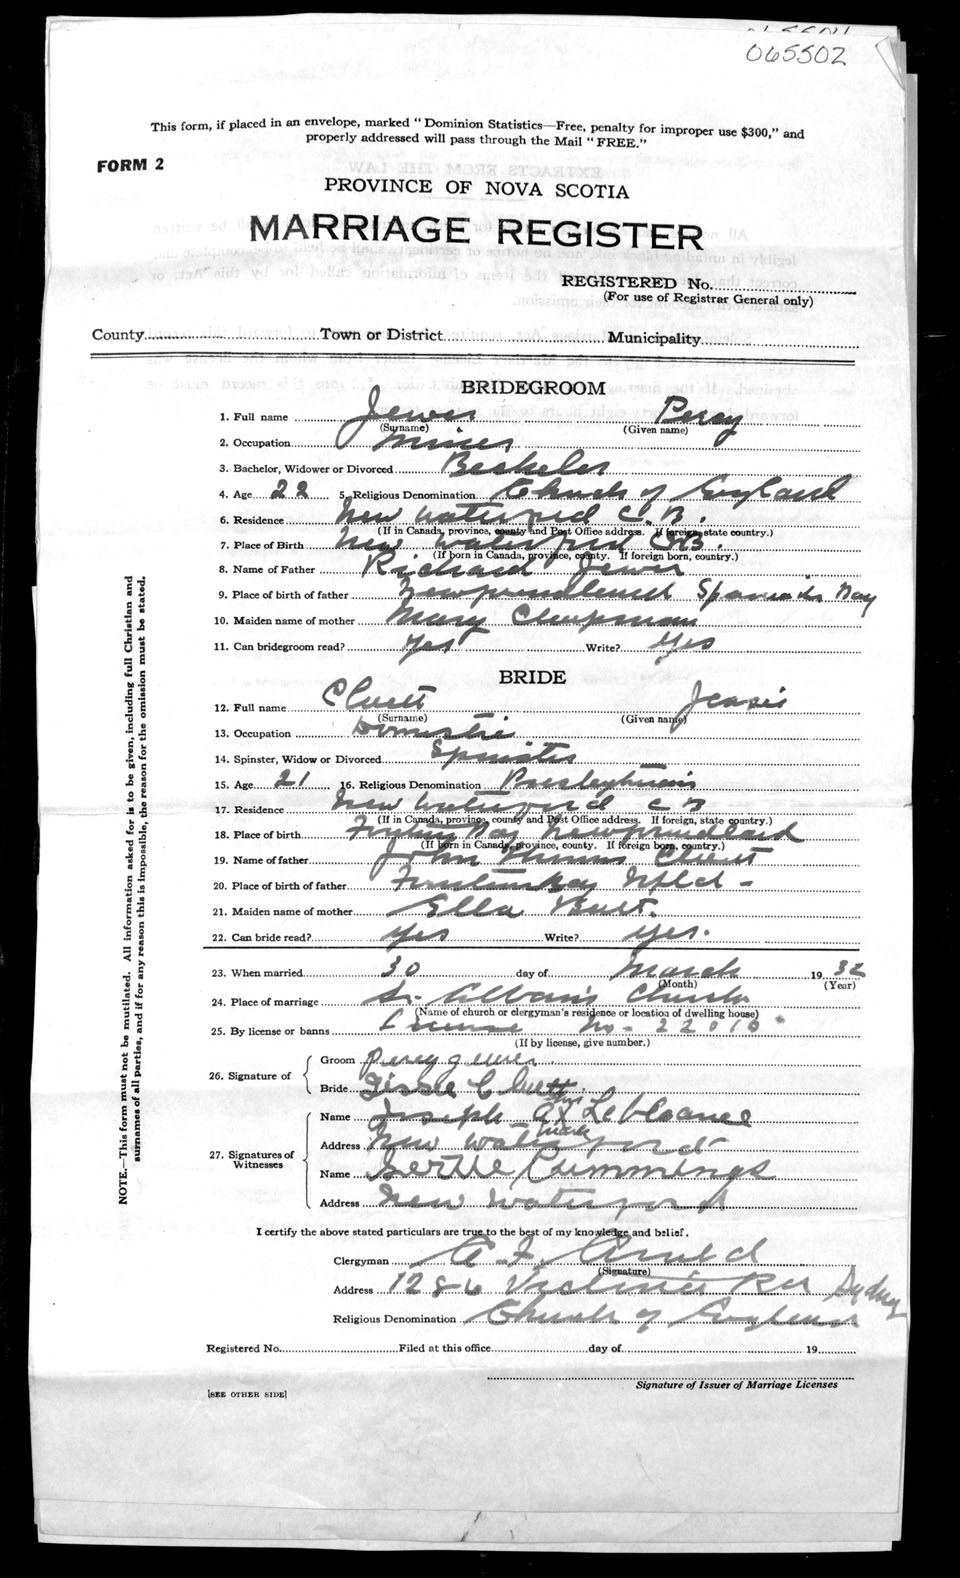 065502
This form, if placed in an envelope, marked "Dominion Statistics—Free, penalty for improper use $300," and
properly addressed will pass through the Mail "FREE."
FORM 2
PROVINCE OF NOVA SCOTIA
MARRIAGE REGISTER
REGISTERED No.
(For use of Registrar General only)
County Town or District Municipality
BRIDEGROOM
1. Full name Jewer Percy
(Surname) (Given name)
2. Occupation Miner
3. Bachelor, Widower or Divorced Bachelor
4. Age 22 5. Religious Denomination Church of England
6. Residence New Waterford C.B.
(If in Canada, province, county and Post Office address. If foreign, state country.)
7. Place of Birth New Waterford C.B.
(If born in Canada, province, county. If foreign born, country.)
8. Name of Father Richard Jewer
9. Place of birth of father Newfoundland Spaniards Bay
10. Maiden name of mother Mary Chapman
11. Can bridegroom read? Yes Write? Yes
BRIDE
12. Full name Cluett Jessie
(Surname) (Given name)
13. Occupation Domestic
14. Spinster, Widow or Divorced Spinster
15. Age 21 16. Religious Denomination Presbyterian
17. Residence New Waterford C B
(If in Canada, province, county and Post Office address. If foreign, state country.)
18. Place of birth Bay Newfoundland
(If born in Canada, province, county. If foreign born, country.)
19. Name of father John Thomas Cluett
20. Place of birth of father Bay Nfld -
21. Maiden name of mother Ella
22. Can bride read? yes Write? yes.
23. When married 30 day of March 1932
(Month) (Year)
24. Place of marriage St. Alban's Church
(Name of church or clergyman's residence or location of dwelling house)
25. By license or banns License No - 22016
(If by license, give number.)
26. Signature of
Groom Percy Jewer
Bride Cluett
27. Signatures of Witnesses
Name Joseph his X mark LeBlance
Address New Waterford
Name Gertie Cummings
Address New Waterford
I certify the above stated particulars are true to the best of my knowledge and belief.
Clergyman A F Arnold
(Signature)
Address 1286 Victoria Rd Sydney
Religious Denomination Church of England
Registered No. Filed at this office day of 19
Signature of Issuer of Marriage Licenses
[SEE OTHER SIDE]
NOTE.—This form must not be mutilated. All information asked for is to be given, including full Christian and
surnames of all parties, and if for any reason this is impossible, the reason for the omission must be stated.